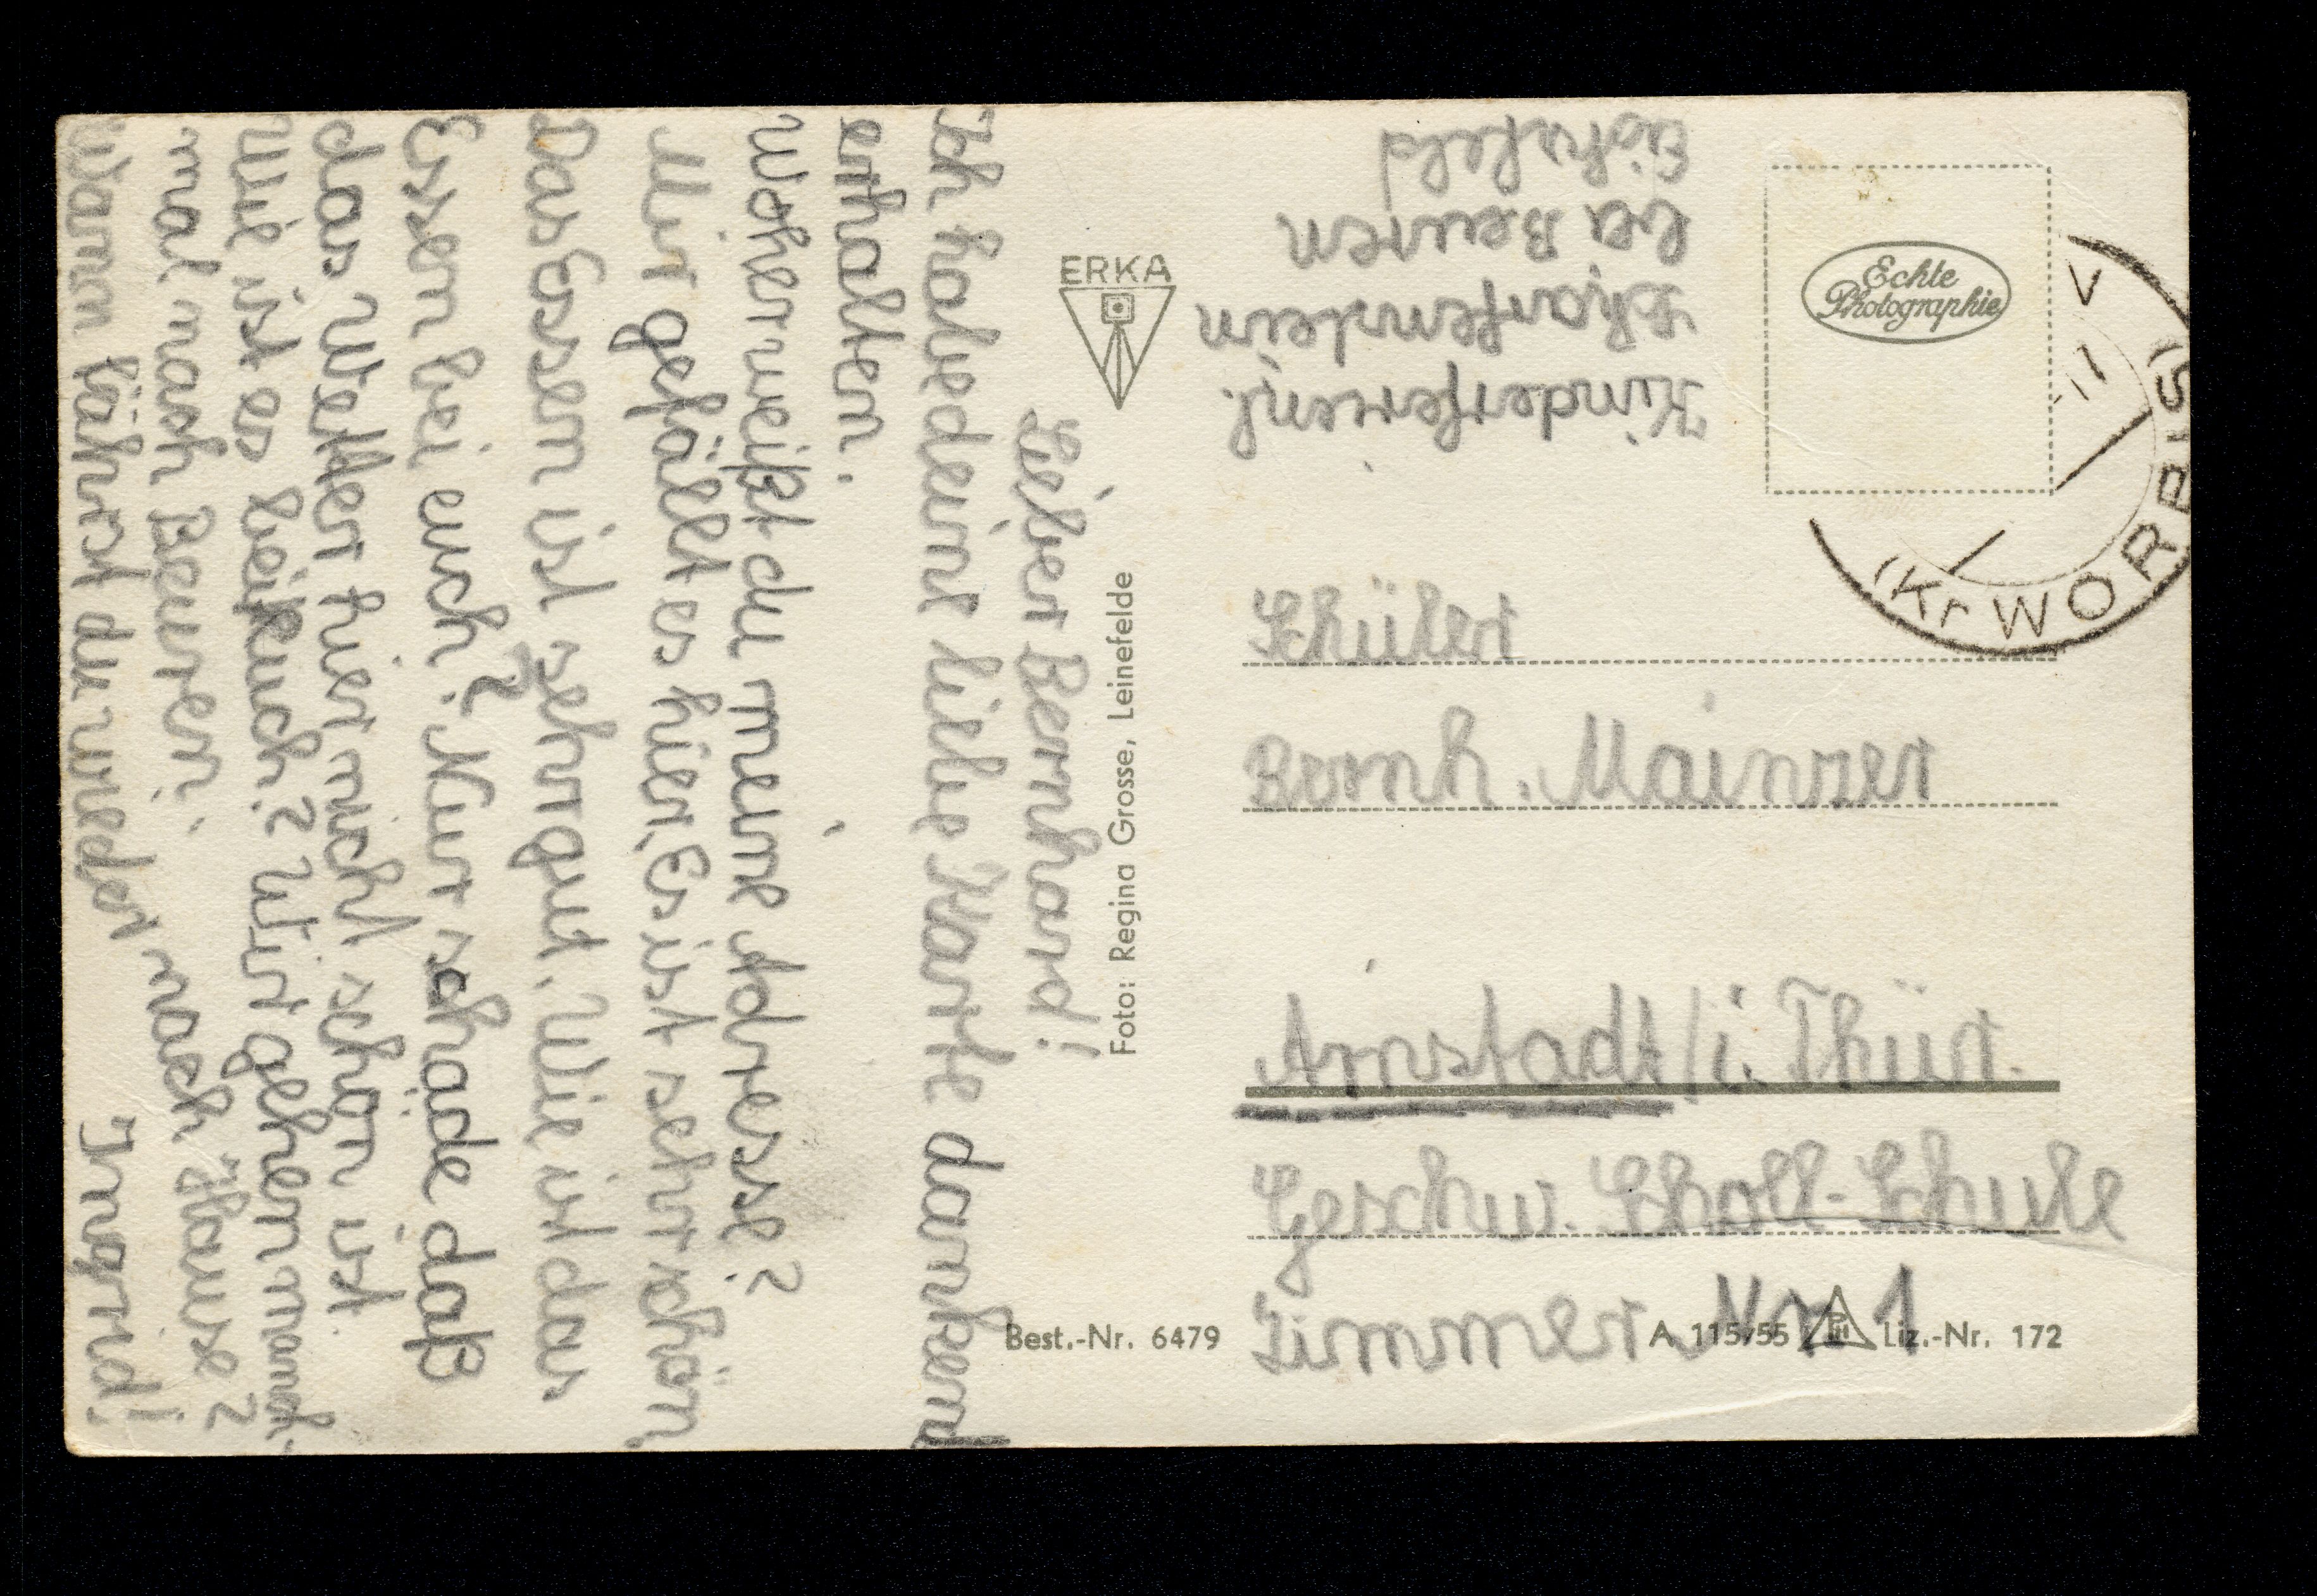 Lieber Bernhard!
Ich habe deine liebe Karte dankend
erhalten.
Woher weißt du meine Adresse?
Mir gefällt es hier, Es ist sehr schön,
Das Essen ist sehr gut. Wie ist das
Essen bei euch? Nur schade daß
das Wetter hier nicht schön ist.
Wie ist es bei euch? Wir gehen manch-
mal nach Beuren.
Wann fährst du wieder nach Hause?
Ingrid!
ERKA
Foto: Regina Grosse, Leinefelde
Best.-Nr. 6479
Kinderferienl.
Scharfenstein
bei Beuren
Eichsfeld
Echte
Photographie
(Kr WORBIS)
Schüler
Bernh. Mainzer
Arnstadt/i. Thür.
Geschw. Scholl-Schule
Zimmer Nr 1
A 115/55 Liz.-Nr. 172